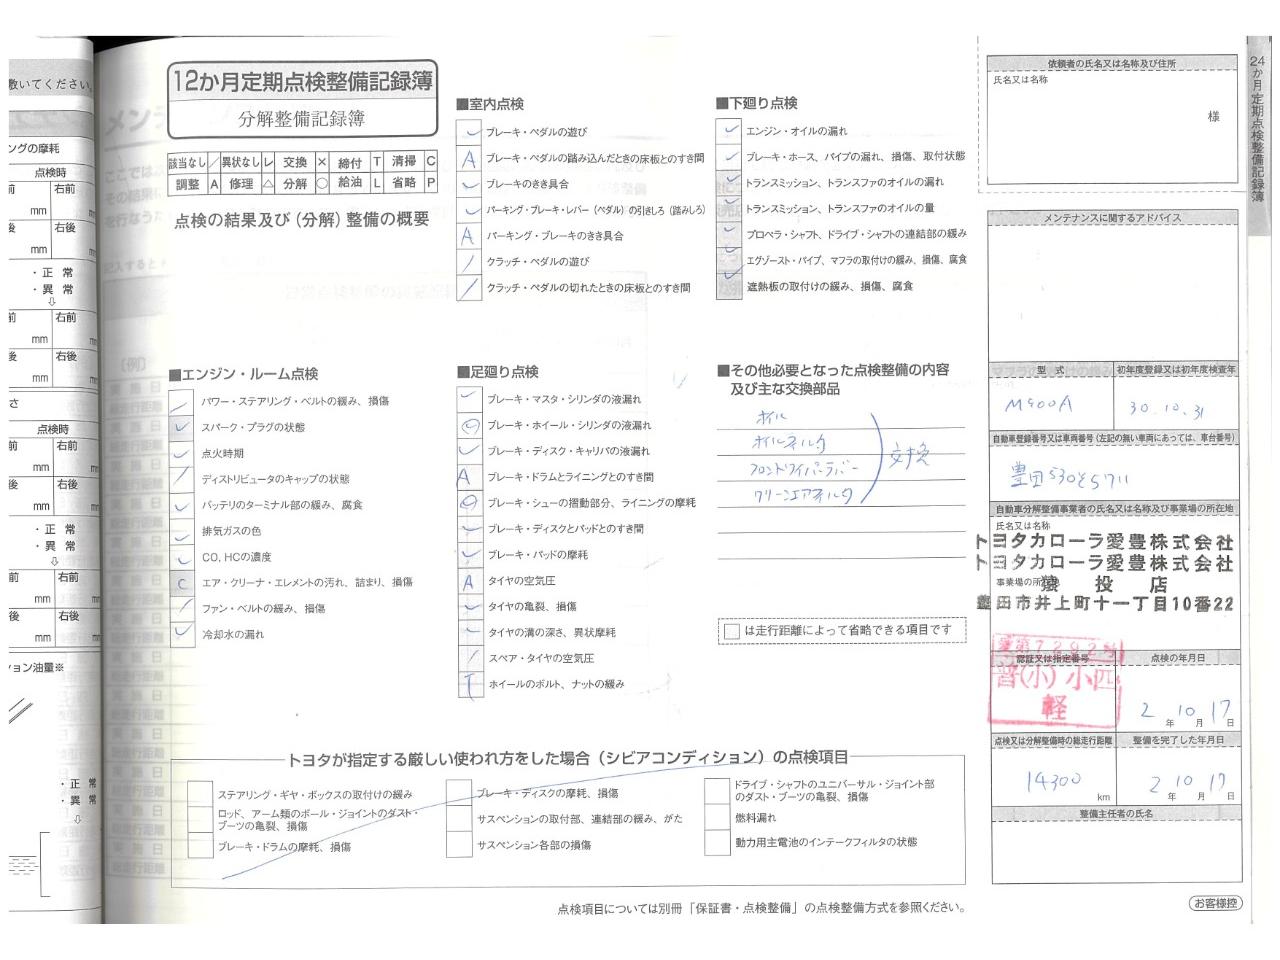 敷いてください。
ングの摩耗
点検時
前
右前
mm
mm
後
右後
mm
mm
・正 常
・異 常
⇩
前
右前
mm
後
右後
mm
さ
点検時
前
右前
mm
mm
後
右後
mm
mm
・正 常
・異 常
⇩
前
右前
mm
mm
後
右後
mm
mm
ション油量※
・正 常
・異 常
⇩
12か月定期点検整備記録簿
分解整備記録簿
該当なし / 異状なし レ 交換 × 締付 T 清掃 C
調整 A 修理 △ 分解 ○ 給油 L 省略 P
点検の結果及び(分解)整備の概要
■エンジン・ルーム点検
/ パワー・ステアリング・ベルトの緩み、損傷
レ スパーク・プラグの状態
レ 点火時期
/ ディストリビュータのキャップの状態
レ バッテリのターミナル部の緩み、腐食
レ 排気ガスの色
レ CO、HCの濃度
C エア・クリーナ・エレメントの汚れ、詰まり、損傷
ファン・ベルトの緩み、損傷
レ 冷却水の漏れ
■室内点検
レ ブレーキ・ペダルの遊び
A ブレーキ・ペダルの踏み込んだときの床板とのすき間
レ ブレーキのきき具合
レ パーキング・ブレーキ・レバー(ペダル)の引きしろ(踏みしろ)
A パーキング・ブレーキのきき具合
/ クラッチ・ペダルの遊び
/ クラッチ・ペダルの切れたときの床板とのすき間
■足廻り点検
レ ブレーキ・マスタ・シリンダの液漏れ
ブレーキ・ホイール・シリンダの液漏れ
レ ブレーキ・ディスク・キャリパの液漏れ
A ブレーキ・ドラムとライニングとのすき間
ブレーキ・シューの摺動部分、ライニングの摩耗
レ ブレーキ・ディスクとパッドとのすき間
レ ブレーキ・パッドの摩耗
A タイヤの空気圧
レ タイヤの亀裂、損傷
レ タイヤの溝の深さ、異状摩耗
/ スペア・タイヤの空気圧
T ホイールのボルト、ナットの緩み
■下廻り点検
レ エンジン・オイルの漏れ
レ ブレーキ・ホース、パイプの漏れ、損傷、取付状態
レ トランスミッション、トランスファのオイルの漏れ
レ トランスミッション、トランスファのオイルの量
レ プロペラ・シャフト、ドライブ・シャフトの連結部の緩み
レ エグゾースト・パイプ、マフラの取付けの緩み、損傷、腐食
レ 遮熱板の取付けの緩み、損傷、腐食
■その他必要となった点検整備の内容
及び主な交換部品
オイル
オイルフィルタ
フロントワイパーラバー
クリーンエアフィルタ
交換
は走行距離によって省略できる項目です
トヨタが指定する厳しい使われ方をした場合(シビアコンディション)の点検項目
ステアリング・ギヤ・ボックスの取付けの緩み
ロッド、アーム類のボール・ジョイントのダスト・
ブーツの亀裂、損傷
ブレーキ・ドラムの摩耗、損傷
ブレーキ・ディスクの摩耗、損傷
サスペンションの取付部、連結部の緩み、がた
サスペンション各部の損傷
ドライブ・シャフトのユニバーサル・ジョイント部
のダスト・ブーツの亀裂、損傷
燃料漏れ
動力用主電池のインテークフィルタの状態
点検項目については別冊「保証書・点検整備」の点検整備方式を参照ください。
依頼者の氏名又は名称及び住所
氏名又は名称
様
メンテナンスに関するアドバイス
型 式
初年度登録又は初年度検査年
M900A
30.10.31
自動車登録番号又は車両番号(左記の無い車両にあっては、車台番号)
豊田530そ5711
自動車分解整備事業者の氏名又は名称及び事業場の所在地
氏名又は名称
トヨタカローラ愛豊株式会社
トヨタカローラ愛豊株式会社
事業場の所
猿 投 店
豊田市井上町十一丁目10番22
愛第7292号
認証又は指定番号
普(小)小四
軽
点検の年月日
2年10月17日
点検又は分解整備時の総走行距離
14300 km
整備を完了した年月日
2年10月17日
整備主任者の氏名
お客様控
24か月定期点検整備記録簿